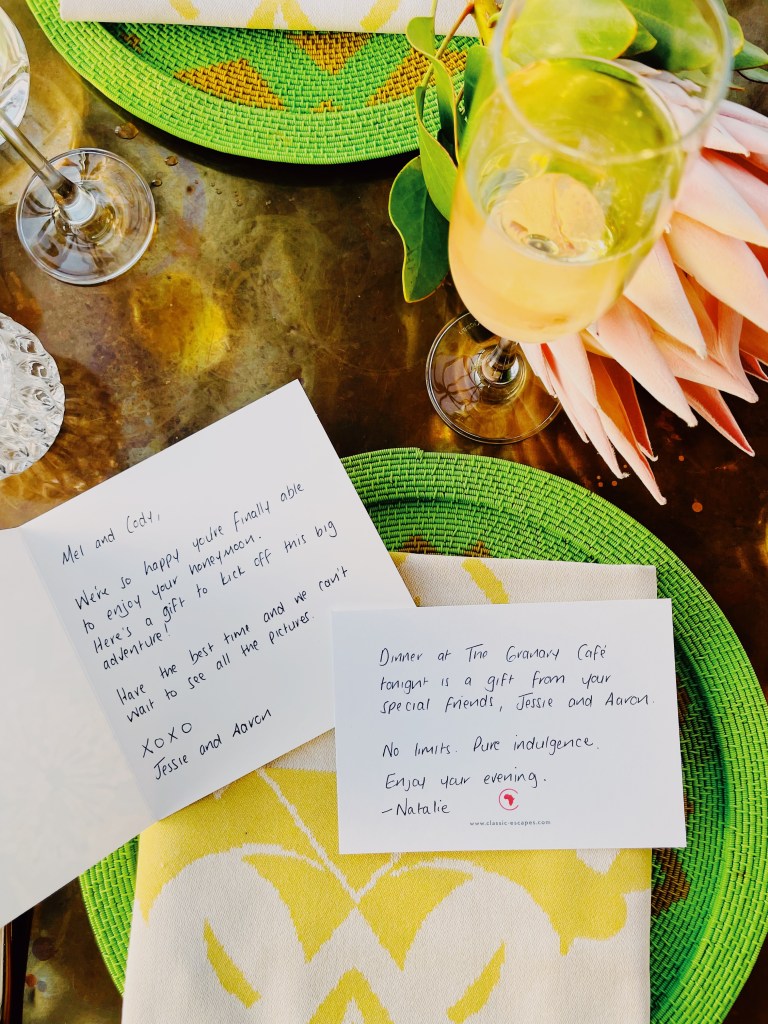 Mel and Cody,
We're so happy you're finally able
to enjoy your honeymoon.
Here's a gift to kick off this big
adventure!
Have the best time and we can't
wait to see all the pictures.
XOXO
Jessie and Aaron
Dinner at The Granary Café
tonight is a gift from your
special friends, Jessie and Aaron.
No limits. Pure indulgence.
Enjoy your evening.
-Natalie
www.classic-escapes.com